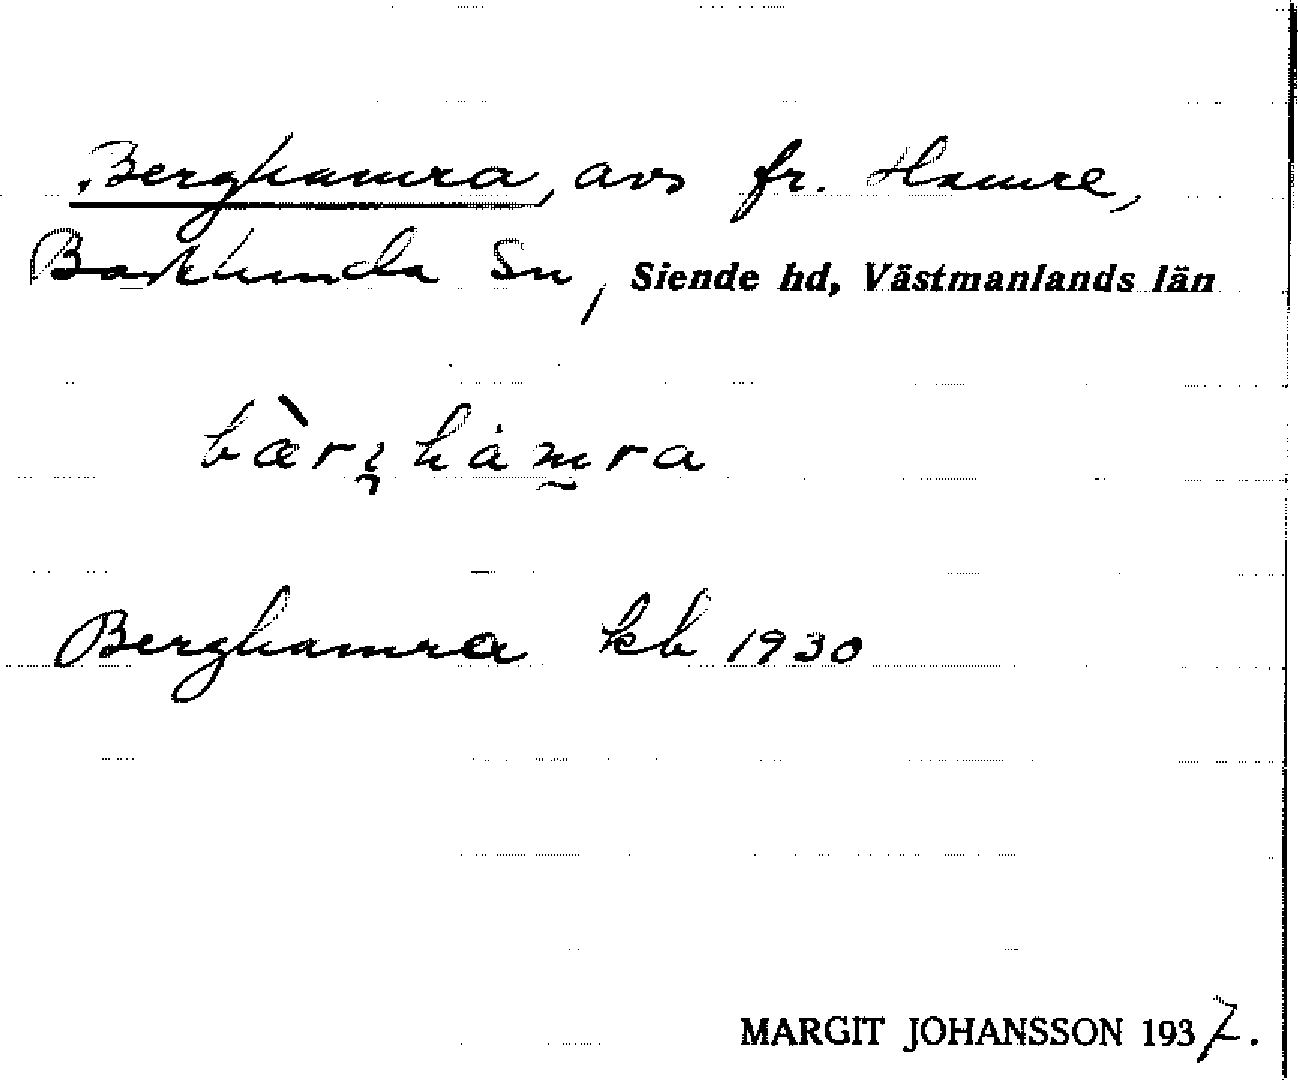 Berghamra, avs fr. Hamre,
Barkhunda Sn, Siende hd, Västmanlands län
bàrįhámra
Berghamra kb 1930
MARGIT JOHANSSON 1937.